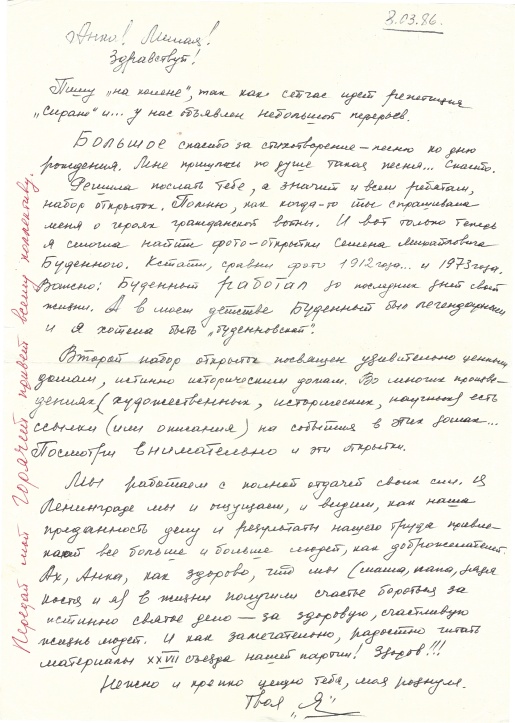 8.03.86.
Анка! Милая!
Здравствуй!
Пишу „на колене", так как сейчас идет репетиция
„Сирано" и... у нас объявлен небольшой перерыв.
Большое спасибо за стихотворение – песню ко дню
рождения. Мне пришлась по душе такая песня... Спасибо.
Решила послать тебе, а значит и всем ребятам,
набор открыток. Помню, как когда-то ты спрашивала
меня о героях гражданской войны. И вот только теперь
я смогла найти фото-открытки Семена Михайловича
Буденного. Кстати, сравни фото 1912 года... и 1973 года.
Важно: Буденный работал до последних дней своей
жизни. А в моем детстве Буденный был легендарным
и я хотела быть „буденновской".
Второй набор открыток посвящен удивительно ценным
домам, истинно историческим домам. Во многих произве-
дениях (художественных, исторических, научных) есть
ссылки (или описания) на события в этих домах...
Посмотри внимательно и эти открытки.
Мы работаем с полной отдачей своих сил. В
Ленинграде мы и ощущаем, и видим, как наша
преданность делу и результаты нашего труда привле-
кают все больше и больше людей, как доброжелателей.
Ах, Анка, как здорово, что мы (мама, папа, дядя
Костя и я) в жизни получили счастье бороться за
истинно святое дело — за здоровую, счастливую
жизнь людей. И как замечательно, радостно читать
материалы XXVII съезда нашей партии! Здоров!!!
Нежно и крепко целую тебя, моя роднуля.
Твоя „Я"
Передай мой горячий привет всему коллективу.